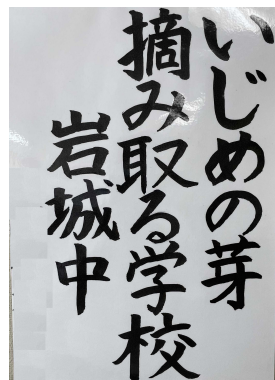 いじめの芽
摘み取る学校
岩城中